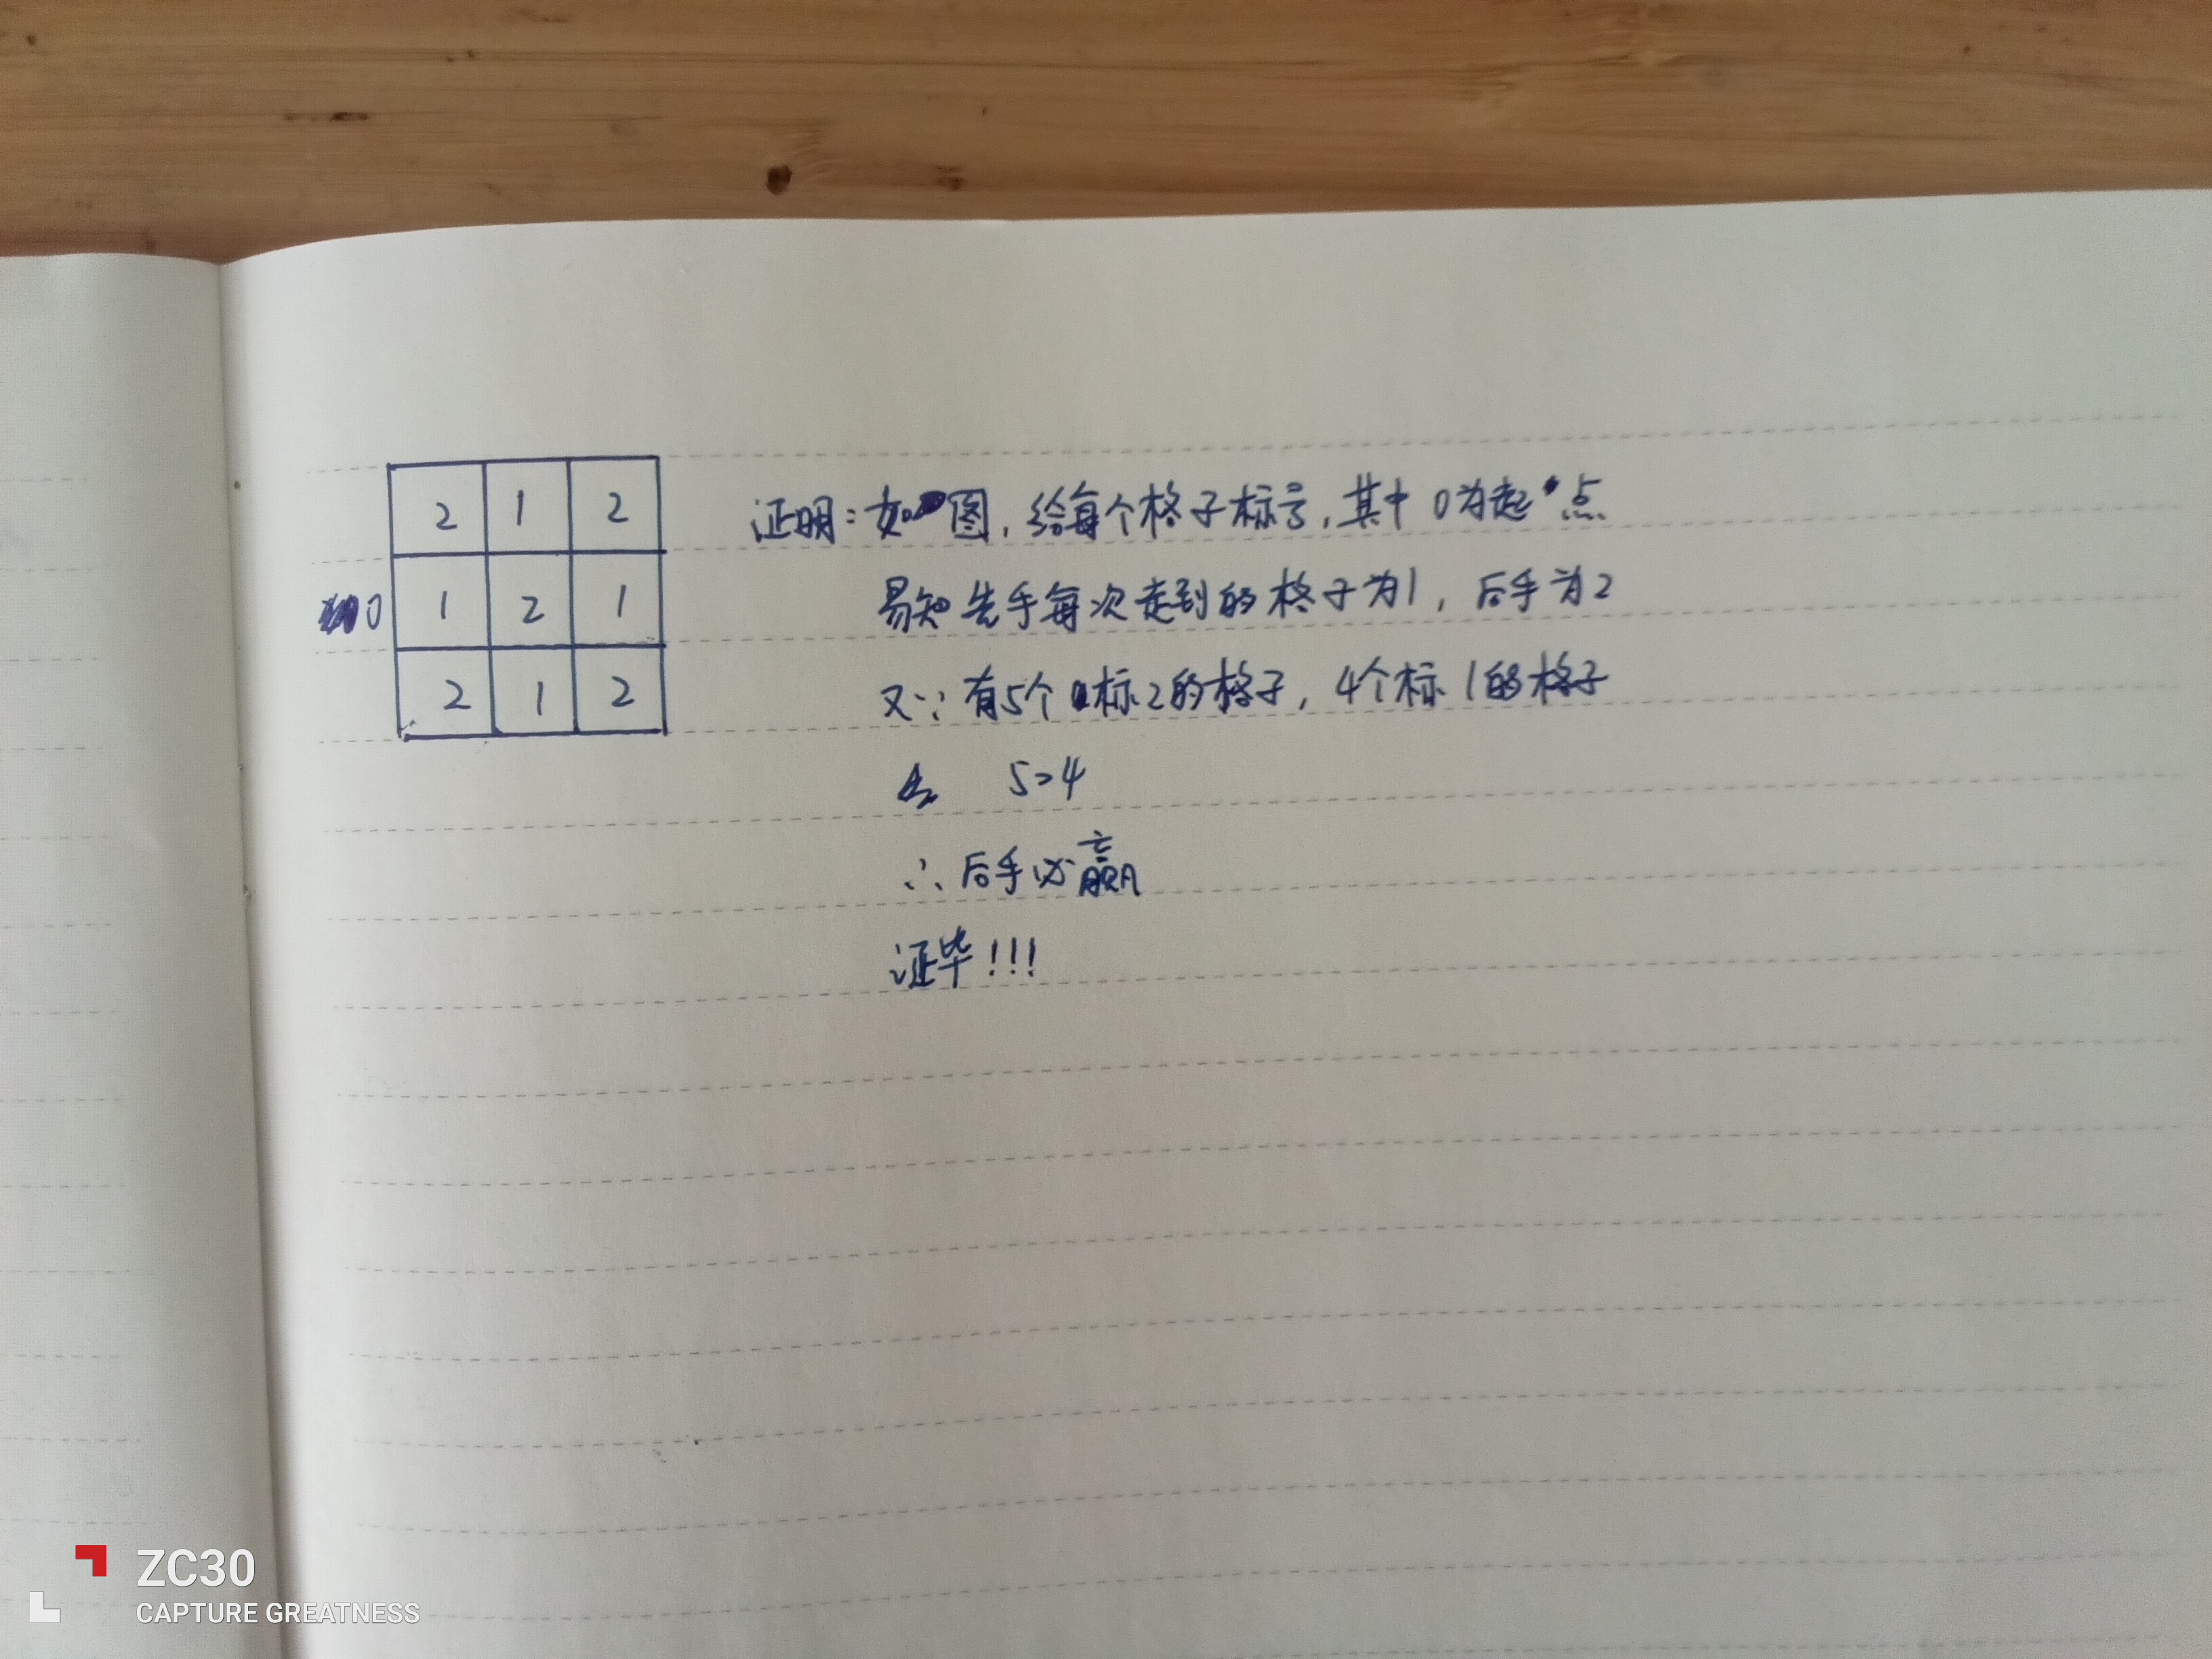 2 1 2
0 1 2 1
2 1 2
证明：如图，给每个格子标号，其中0为起点
易知先手每次走到的格子为1，后手为2
又∵有5个标2的格子，4个标1的格子
5>4
∴后手必赢
证毕!!!
ZC30
CAPTURE GREATNESS